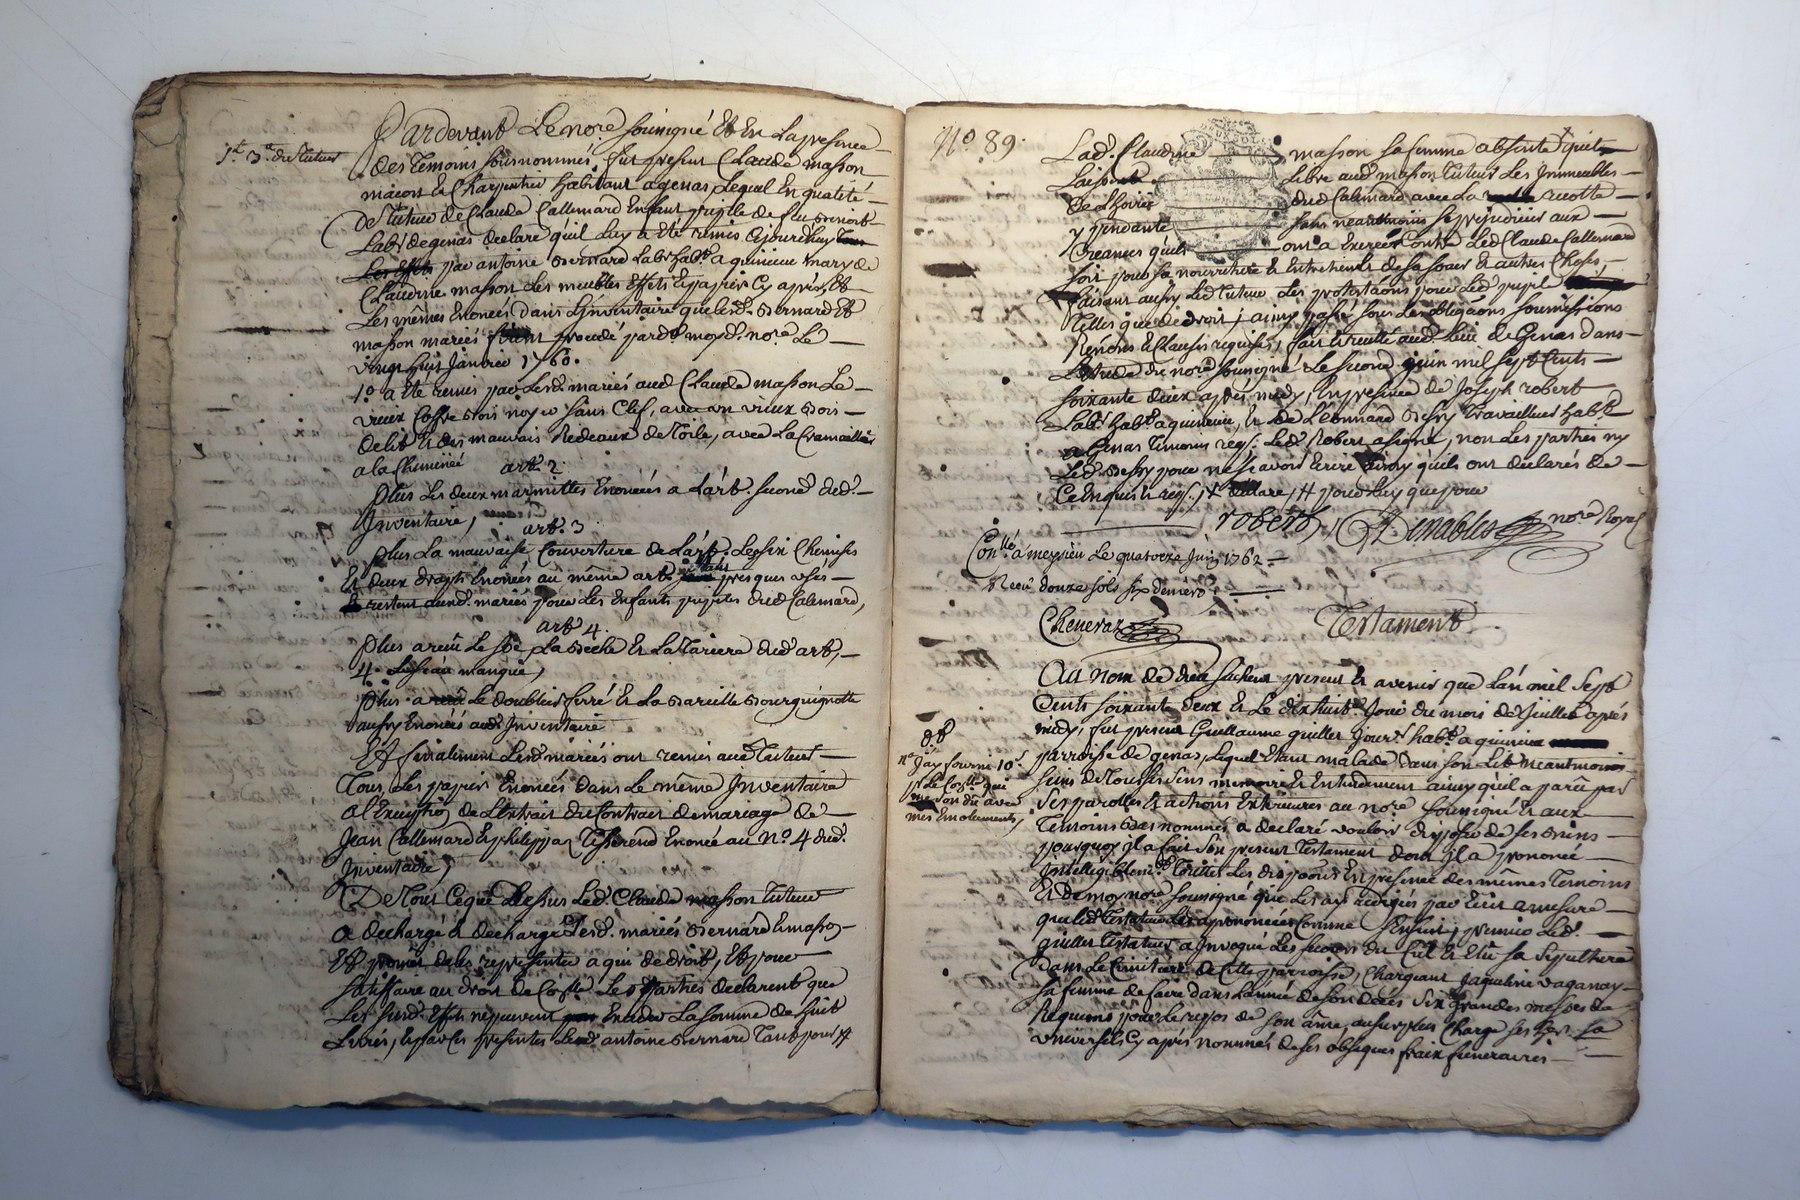 Pardevant Le nore soussigné Et En La presence
des Temoins sousnommés, fut present Claude masson
macon & Charpentier habitant a genas, Lequel En qualité
de Tuteur de Claude Callemard Enfant pupille de feu benoit
Labr de genas declare qu'il luy a été remis Cejourdhuy
par antoine Bernard Labr habt a quincieu mary de
Claudine masson Les meubles Effets & papiers Cy après, Et
Les mêmes Enoncés dans L'Inventaire que lesd. Bernard Et
masson mariés procedé pardt moyd. nore Le
vingt huit Janvier 1760.
1o a été remis par Lesd. mariés aud Claude masson Le
vieux Coffre bois noyer sans Clef, avec un vieux bois
de lit & des mauvais Redeaux de Toile, avec La Cramaillere
a la Cheminée art. 2
plus Les deux marmittes Enoncées a L'art. second dud.
Inventaire,
art. 3
plus La mauvaise Couverture de L'art. Les six Chemises
Et deux draps Enoncés au même art. presques usés
restent auxd. mariés pour Les Enfants pupiles dud Calemard,
art. 4.
plus a remis La beche & La Tariere dud. art,
4. Le seau manque,
plus a Le doublier ferré & La bareille bourguignotte
aussy Enoncés aud. Inventaire
Et finalement Lesd. mariés ont remis aud. Tuteur
Tous Les papiers Enoncés dans Le même Inventaire
a l'Exception de L'Extrait du Contrat de mariage de
Jean Callemard & philippa Tisserend Enoncé au No. 4 dud.
Inventaire,
De Tout Ceque Dessus Led. Claude masson Tuteur
a dechargé & decharge Lesd. mariés Bernard & masson
Et promet de les representer a qui de droit, Et pour
satisfaire au droit de Contlle Les parties declarent que
Les susd. Effets n'peuvent Exceder La somme de huit
Livres, & par Ces presentes Led. antoine Bernard Tant pour #
No 89.
Lad. Claudine masson sa femme absente & quitte
Laissent Libre aud masson Tuteur Les Immeubles
de L'hoirie dud Calemard avec La recolte
y pendante sans neantmoins se prejudicier aux
Creances qu'ils ont a Exercer Contre Led Claude Callemard
soit pour sa nourriture & Entretient de sa soeur & autres Choses,
faisant aussy Led Tuteur Les protestaons pour Led pupil
Telles que de droit; ainsy passé sous Les obligaons soumissions
Renons & Clauses requises, fait & recitté aud. lieu de Genas dans
L'Etude du nore soussigné Le second juin mil sept Cents
soixante deux après midy, En presence de Joseph robert
Labr habt a quincieu, & de Leonnard travailleur habt
a Genas Temoins req. Led. Robert a signé, non Les parties ny
Led. pour ne sçavoir Ecrire ainsy qu'ils ont declarés de
Ce Enquis & req. declare, # pour Luy que pour
robert, Demables nore Royal
Conllé a meyzieu Le quatorze Juin 1762
Receu douze sols six deniers
Chenevaz
Testament
Au Nom de dieu sachent present & avenir que L'an mil sept
Cents soixante deux & Le dixhuitt. Jour du mois de Juillet après
midy, fut present Guillaume quillet Jourr habt a quincieu
parroisse de genas, Lequel Etant malade dans son Lit neantmoins
sain de Tous ses sens memoire & Entendement ainsy qu'il a parû par
ses parolles & actions Exterieures au nore soussigné & aux
Temoins bas nommés a declaré vouloir disposer de ses biens
pourquoy Il a fait son present Testament dont Il a prononcé
Intelligiblemt. Toutes Les disposions En presence des mêmes Temoins
Et de moy nore soussigné que Les ay redigées par Ecrit a mesure
que led. Testateur Les a prononcées Comme s'Ensuit; premier Led.
quillet Testateur a Invoqué Les secours du Ciel & Elu sa sepulture
dans Le Cimitiere de Cette parroisse, Chargeant Jaqueline vaganay
sa femme de faire dans L'année de son decés six grandes messes de
Requiem pour Le repos de son âme, au surplus Charge ses her.
universels Cy après nommés de ses obseques fraix funeraires
J'ay fourni 10s
pr Le Conlle qui
me son dû avec
mes Emoluments,